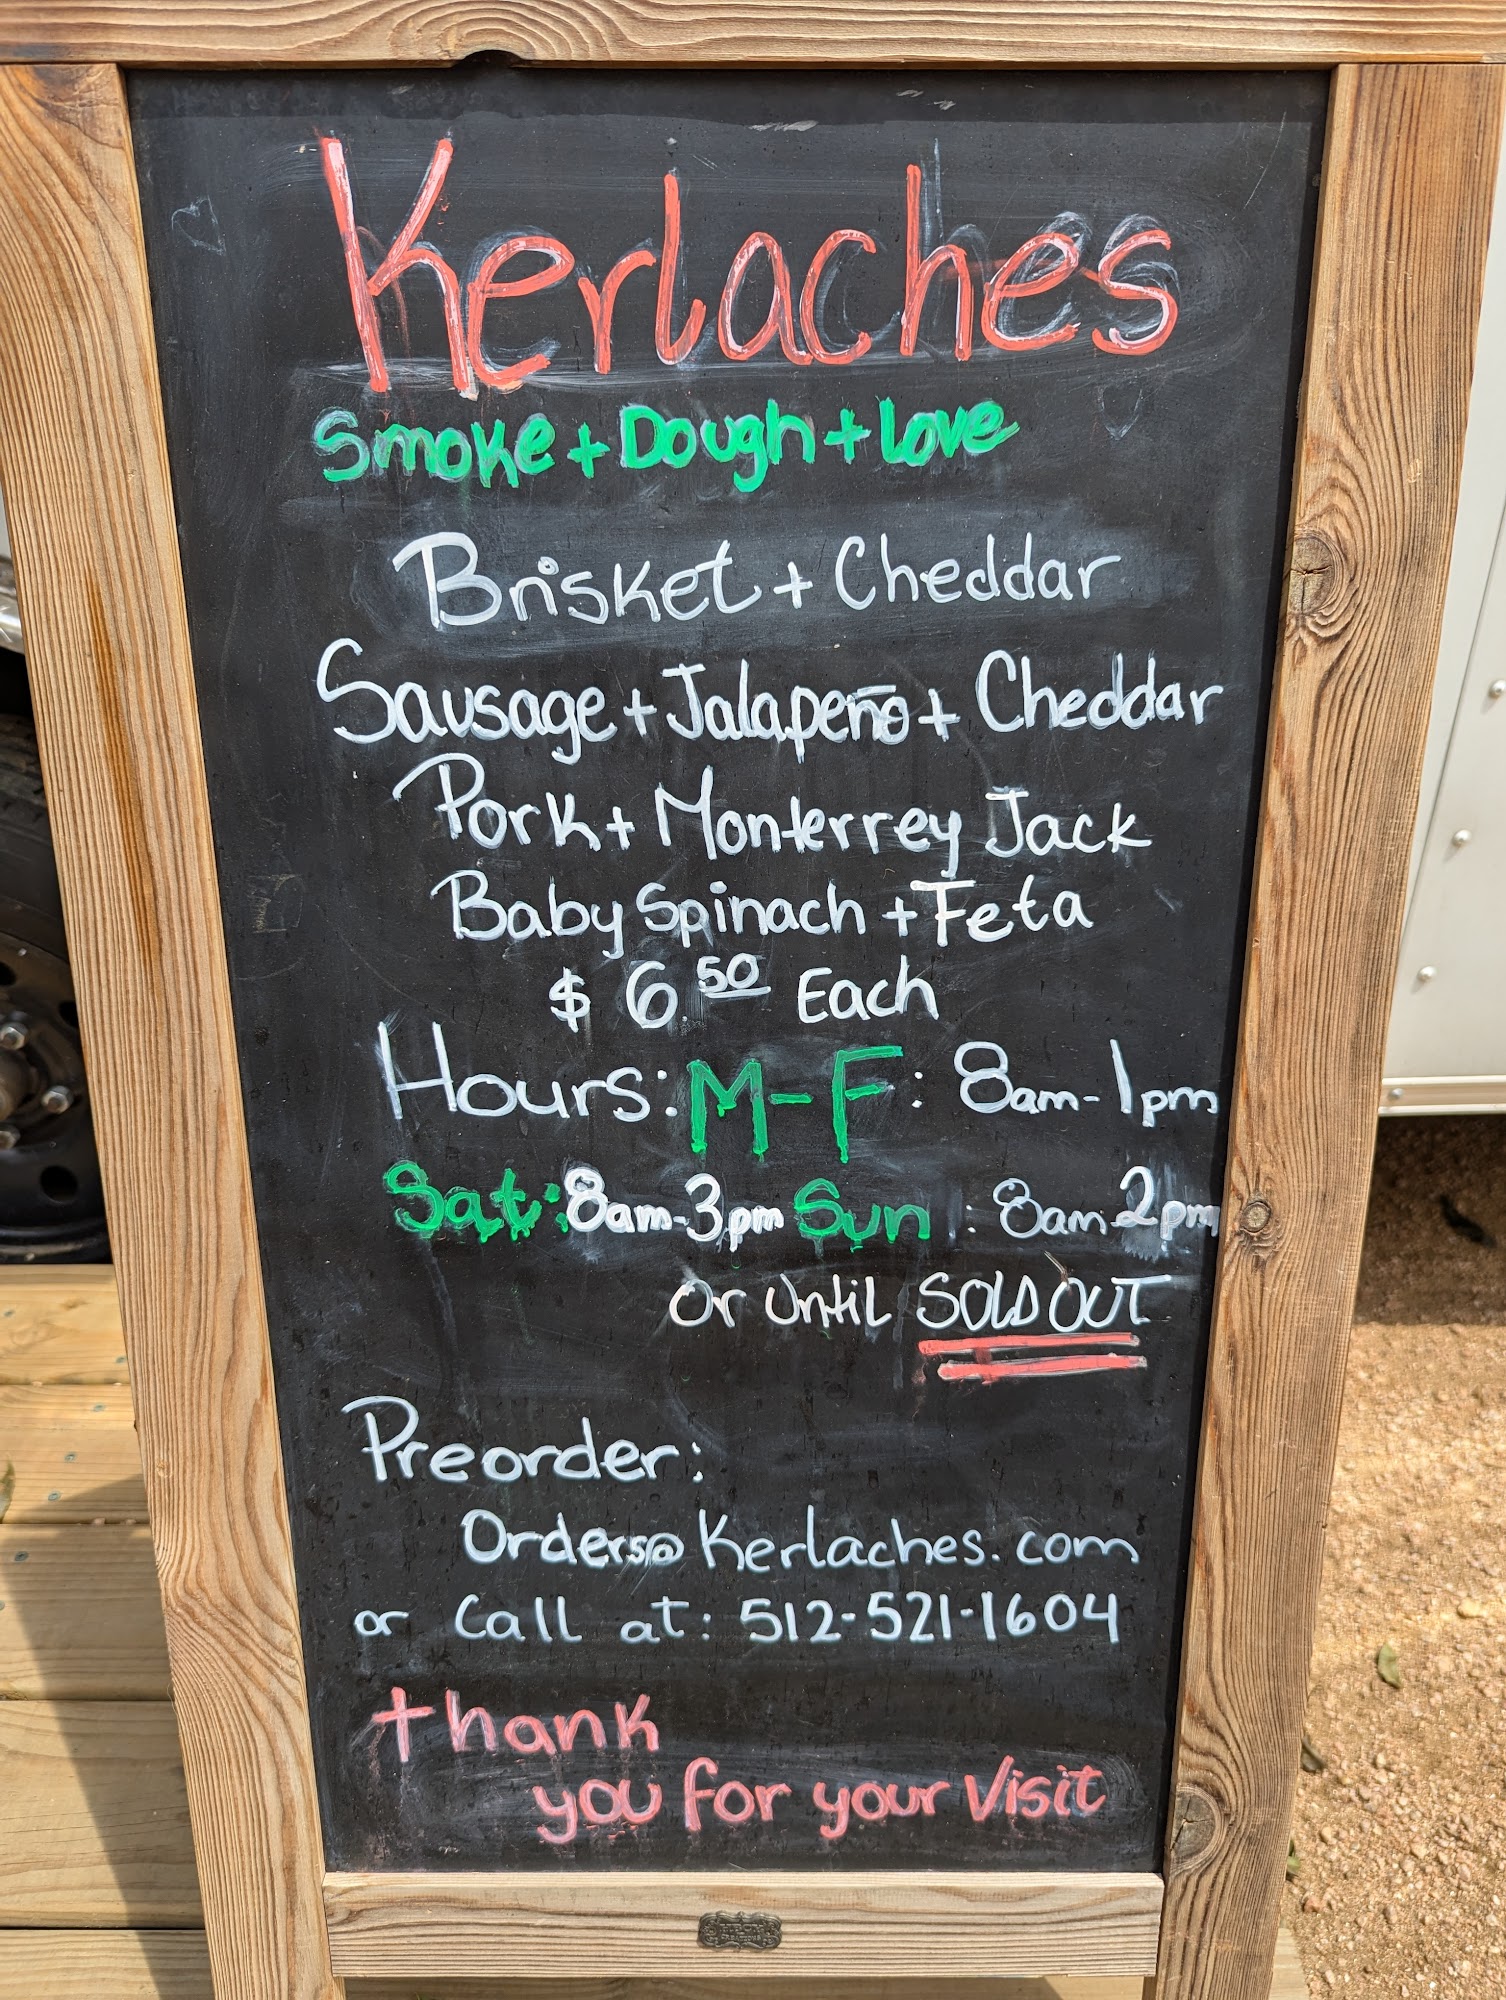 Kerlaches
Smoke + Dough + Love
Brisket + Cheddar
Sausage + Jalapeño + Cheddar
Pork + Monterrey Jack
Baby Spinach + Feta
$6.50 Each
Hours: M-F: 8am-1pm
Sat: 8am-3pm Sun: 8am-2pm
Or Until SOLD OUT
Preorder:
Orders@Kerlaches.com
or Call at: 512-521-1604
thank
you for your Visit